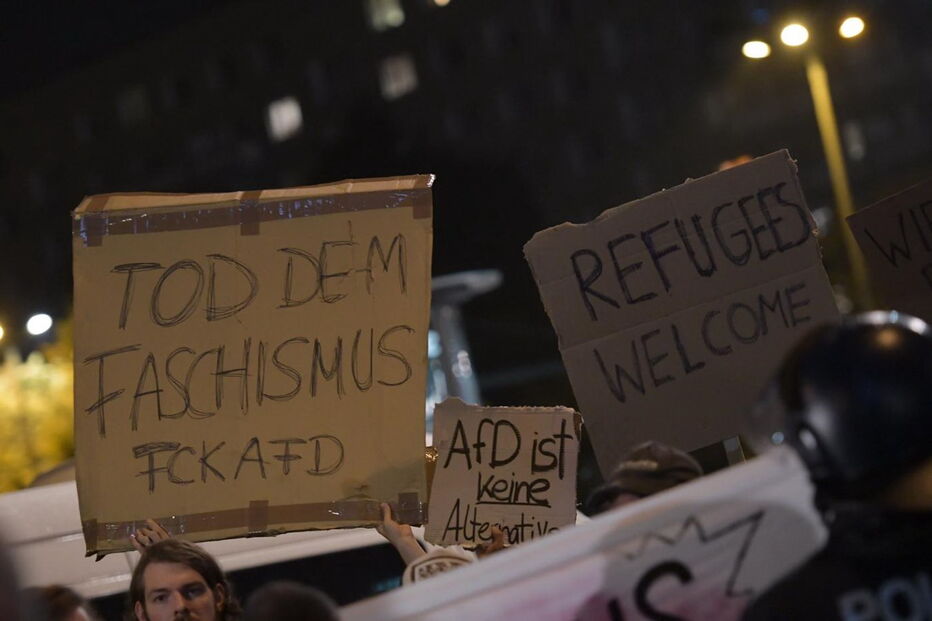 TOD DEM
FASCHISMUS
FCK AFD
REFUGEES
WELCOME
AfD ist
keine
Alternative